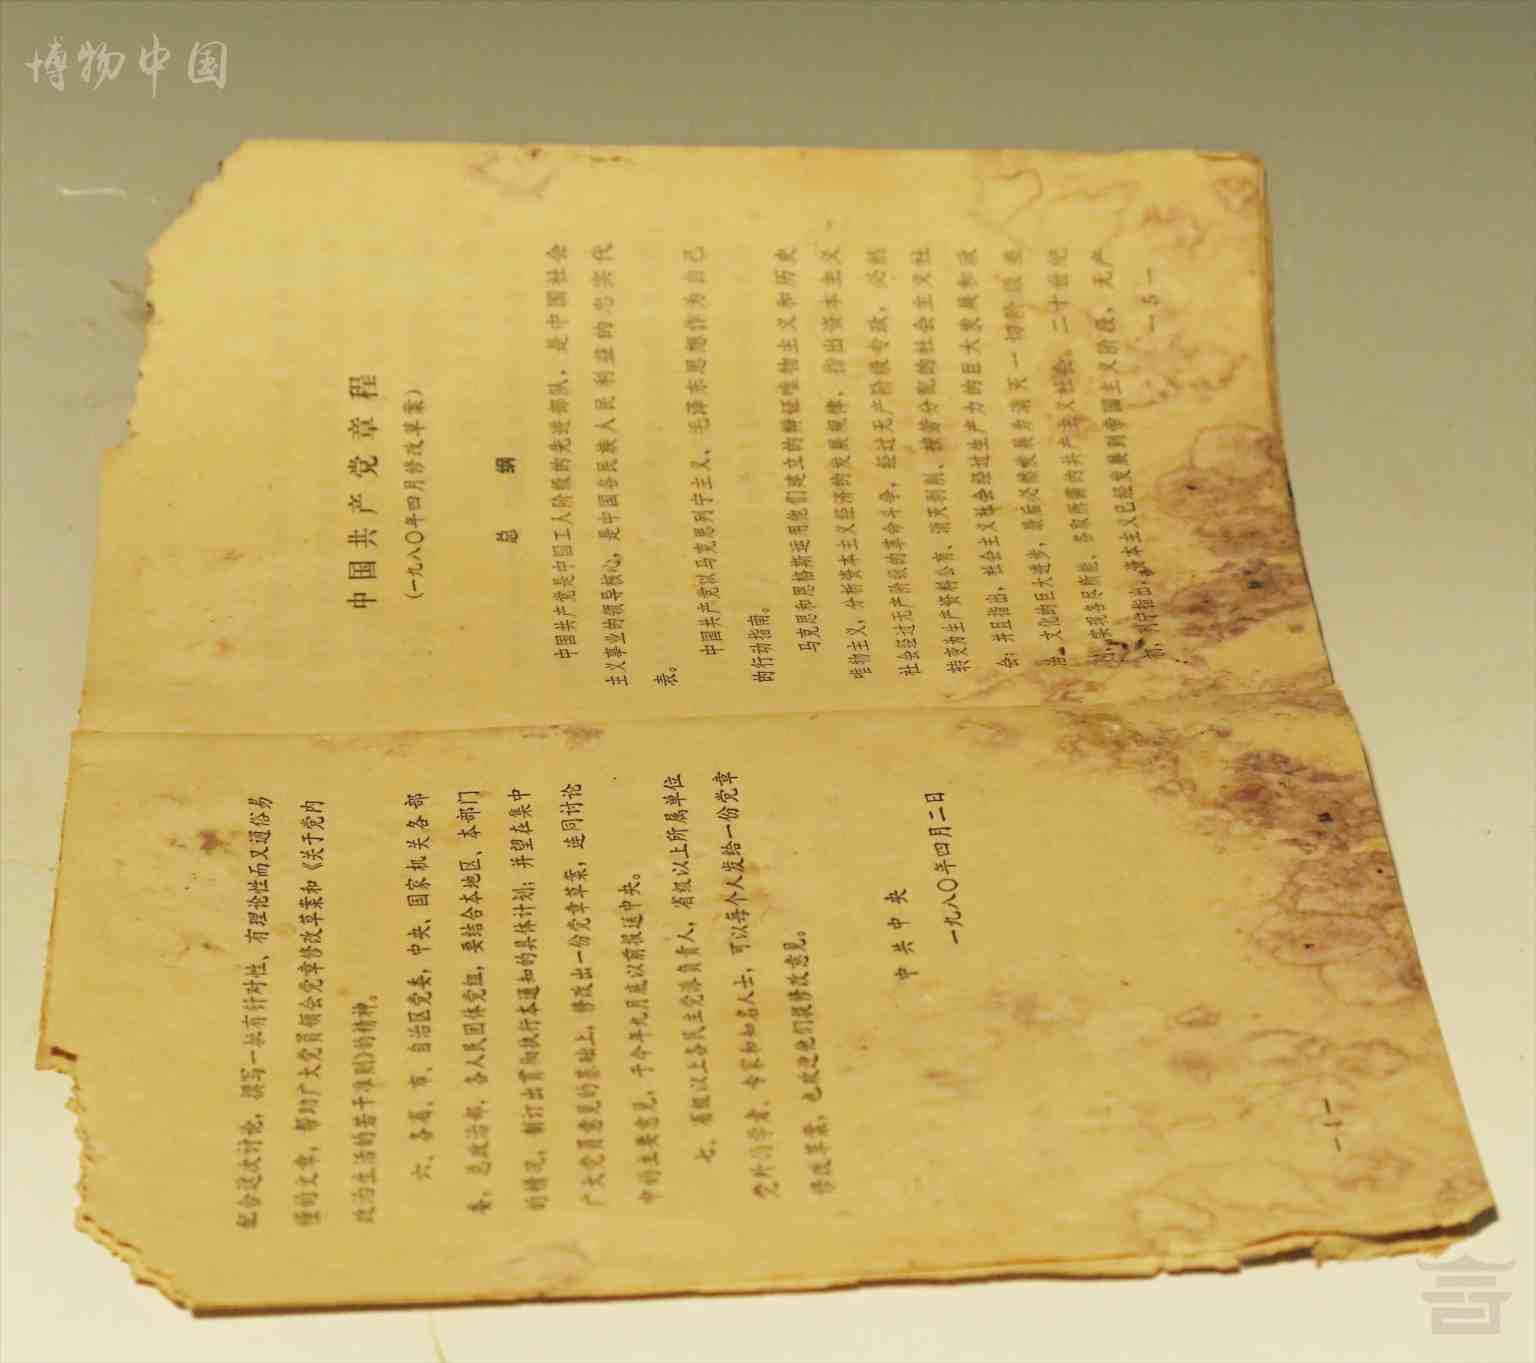 博物中国
配合这次讨论，撰写一批有针对性、有理论性而又通俗易
懂的文章，帮助广大党员领会党章修改草案和《关于党内
政治生活的若干准则》的精神。
六、各省、市、自治区党委，中央、国家机关各部
委，总政治部，各人民团体党组，要结合本地区、本部门
的情况，制订出贯彻执行本通知的具体计划；并望在集中
广大党员意见的基础上，修改出一份党章草案，连同讨论
中的主要意见，于今年九月底以前报送中央。
七、省级以上各民主党派负责人，省级以上所属单位
党外的学者、专家和知名人士，可以每个人发给一份党章
修改草案，也欢迎他们提修改意见。
中共中央
一九八〇年四月二日
—4—
中国共产党章程
（一九八〇年四月修改草案）
总纲
中国共产党是中国工人阶级的先进部队，是中国社会
主义事业的领导核心，是中国各民族人民利益的忠实代
表。
中国共产党以马克思列宁主义、毛泽东思想作为自己
的行动指南。
马克思和恩格斯运用他们建立的辩证唯物主义和历史
唯物主义，分析资本主义经济的发展规律，指出资本主义
社会经过无产阶级的革命斗争，经过无产阶级专政，必然
转变为生产资料公有、消灭剥削、按劳分配的社会主义社
会；并且指出，社会主义社会经过生产力的巨大发展和政
治、文化的巨大进步，最后必然发展为消灭一切阶级差
别，实现各尽所能、各取所需的共产主义社会。二十世纪
初，列宁指出，资本主义已经发展到帝国主义阶段，无产
—5—